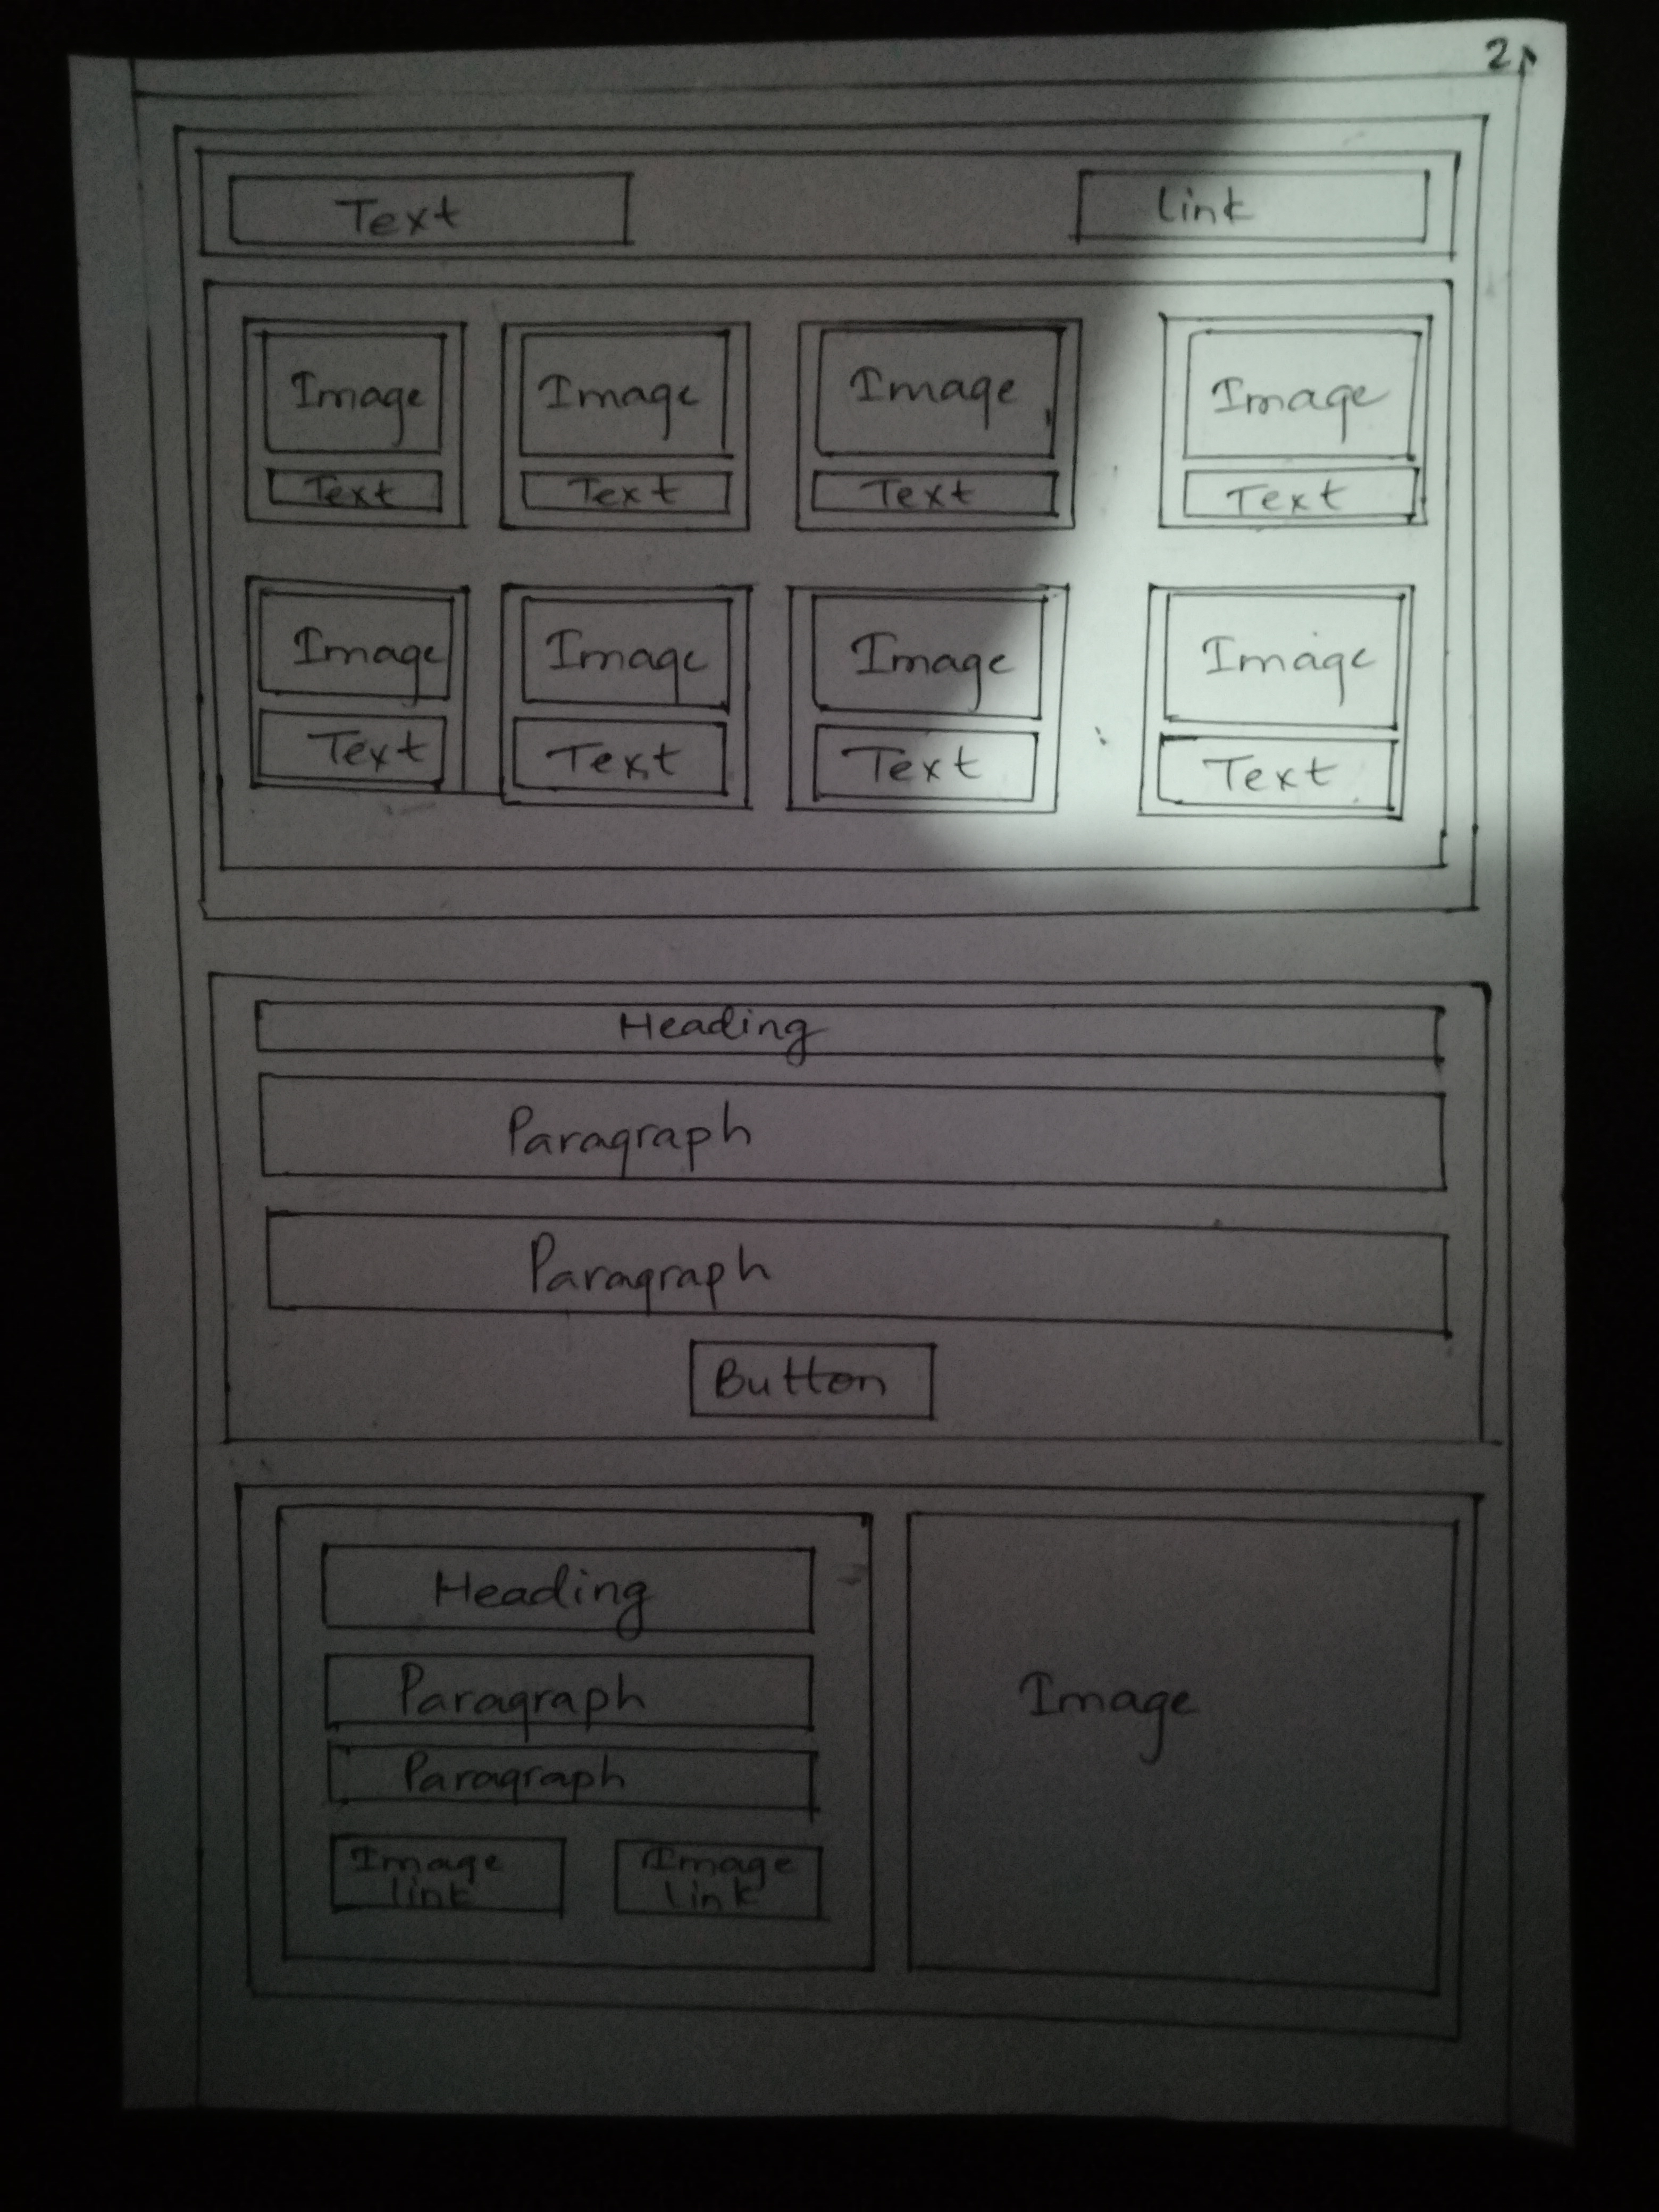 2
Text
Link
Image Image Image Image
Text Text Text Text
Image Image Image Image
Text Text Text Text
Heading
Paragraph
Paragraph
Button
Heading
Paragraph
Paragraph
Image
link
Image
link
Image